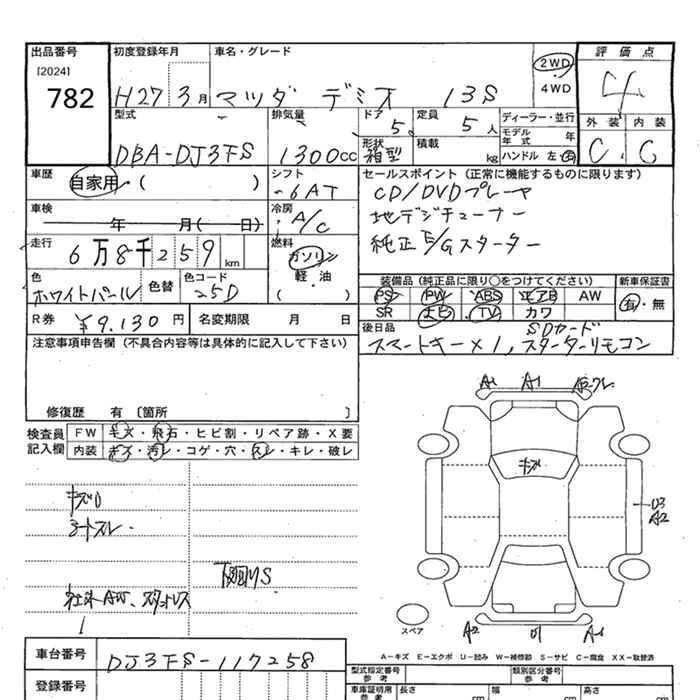 出品番号 初度登録年月 車名・グレード 評価点
[2024]
782
H27 3月 マツダ デミオ 13S
2WD
4WD
4
型式 排気量 ドア 定員 ディーラー・並行
5 5人 モデル年式 年
外装 内装
DBA-DJ3FS 1300cc
形状 箱型 積載 kg ハンドル 左・右
C C
車歴 自家用・( )
シフト 6AT
セールスポイント (正常に機能するものに限ります)
CD/DVDプレーヤ
地デジチューナー
純正E/Gスターター
車検 年 月( 日)
冷房 A/C
走行 6万8千259km
燃料 ガソリン
軽・油
( )
色 ホワイトパール 色替 色コード 25D
装備品 (純正品に限り○をつけてください) 新車保証書
PS PW ABS エアB AW
SR ナビ TV カワ
有・無
R券 ¥9,130円 名変期限 月 日
後日品 SDカード
スマートキー×1,スターターリモコン
注意事項申告欄 (不具合内容等は具体的に記入して下さい)
修復歴 有 [箇所 ]
検査員 FW キズ・飛石・ヒビ割・リペア跡・X要
記入欄 内装 キズ・汚レ・コゲ・穴・スレ・キレ・破レ
A1 A1
キズ
U3
A2
キズU
シートスレ
下回りS
社外AW、スタットレス
スペア
A2 U1 A1
A−キズ E−エクボ U−凹み W−補修跡 S−サビ C−腐食 XX−取替済
車台番号 DJ3FS-117258
登録番号
型式指定番号 参考 類別区分番号 参考
車庫証明用 参考 長さ cm 幅 cm 高さ cm